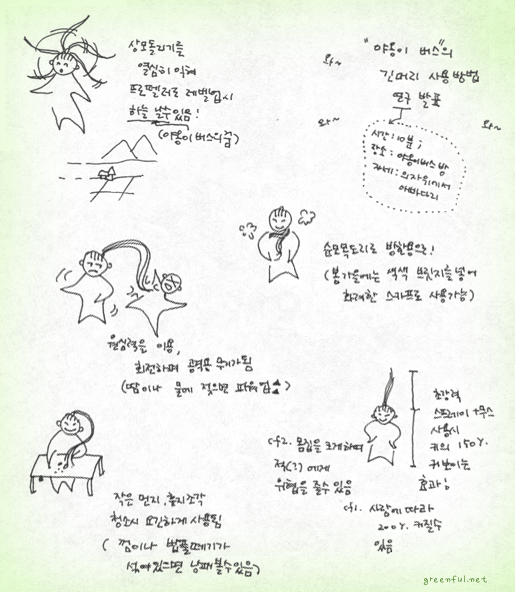 "야옹이 버스"의
긴머리 사용방법
연구 발표
와~
와~
와~
시간: 10분;
장소: 야옹이버스 방
자세: 의자위에서
양반다리
상모돌리기를
열심히 익혀
프로펠러로 레벨업시
하늘 날수있음!
(야옹이 버스의 꿈)
순모목도리로 방한용으로!
(봄가을에는 색색 브릿지를 넣어
화려한 스카프로 사용가능)
원심력을 이용,
회전하며 공격용 무기가됨
(땀이나 물에 젖으면 파워업▲)
초강력
스프레이+무스
사용시
키의 150%
커보이는
효과;
cf1. 사람에 따라
200% 커질수
있음
cf2. 몸집을 크게하여
적(?)에게
위협을 줄수 있음
작은 먼지, 휴지조각
청소시 요긴하게 사용됨
(껌이나 밥풀떼기가
섞여있으면 낭패볼수있음)
greenful.net